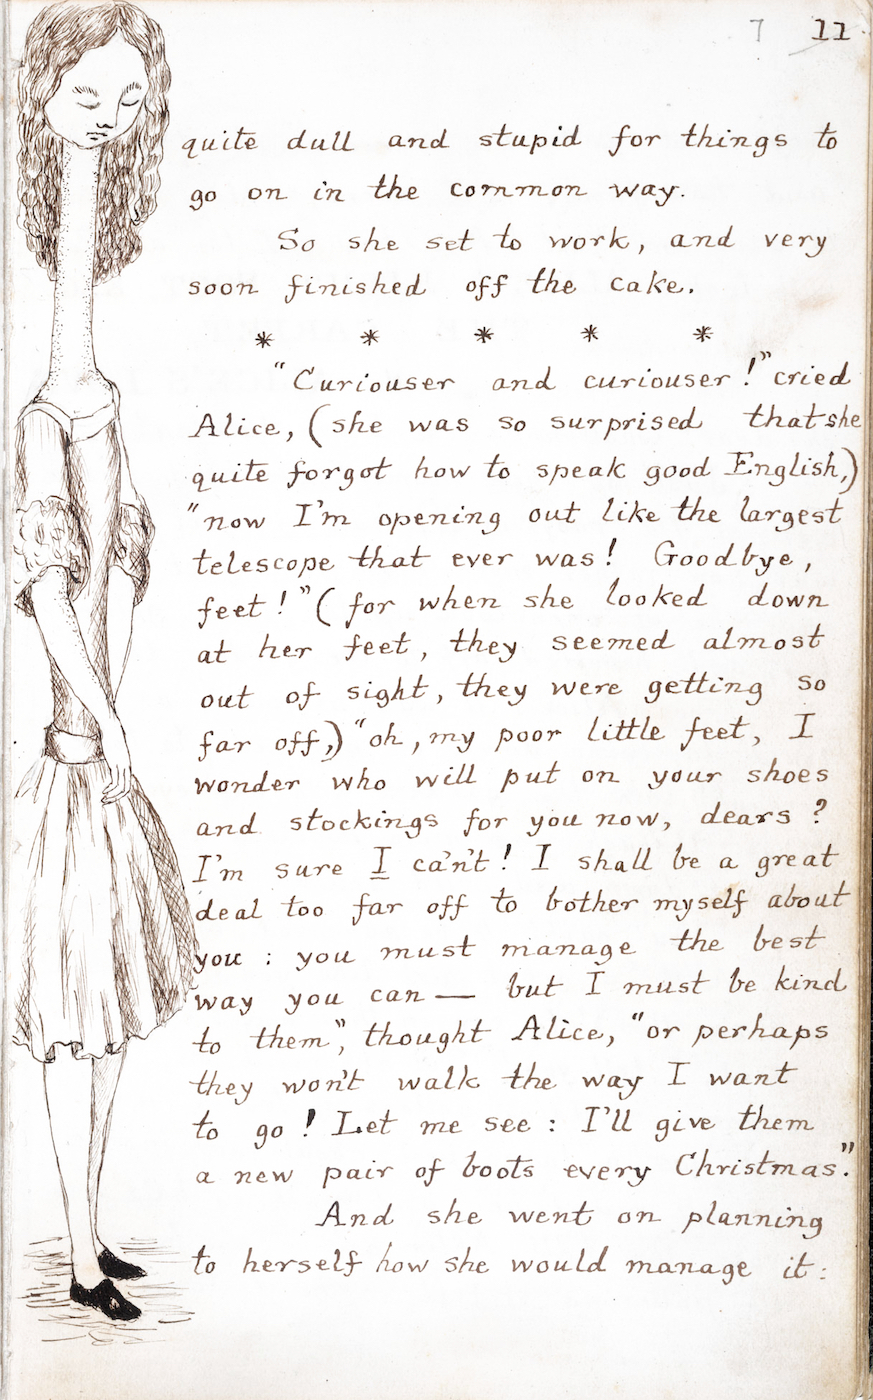 7 11
quite dull and stupid for things to
go on in the common way.
So she set to work, and very
soon finished off the cake.
* * * * *
"Curiouser and curiouser!" cried
Alice, (she was so surprised that she
quite forgot how to speak good English,)
"now I'm opening out like the largest
telescope that ever was! Goodbye,
feet!" (for when she looked down
at her feet, they seemed almost
out of sight, they were getting so
far off,) "oh, my poor little feet, I
wonder who will put on your shoes
and stockings for you now, dears?
I'm sure I ca'n't! I shall be a great
deal too far off to bother myself about
you: you must manage the best
way you can — but I must be kind
to them", thought Alice, "or perhaps
they won't walk the way I want
to go! Let me see: I'll give them
a new pair of boots every Christmas".
And she went on planning
to herself how she would manage it: